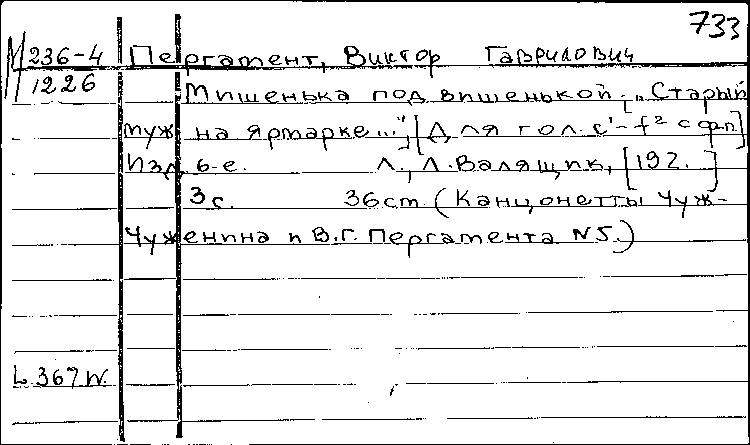 733
М 236-4 Пергамент, Виктор Гаврилович
1226
Мишенька под вишенькой. [„Старый
муж на ярмарке..."] [Для гол. c'-f² с фп.]
Изд. 6-е. Л., Л. Валящик, [192.]
3 с. 36 cm. (Канцонетты Чуж-
Чуженина и В. Г. Пергамента N 5.)
L. 367 W.